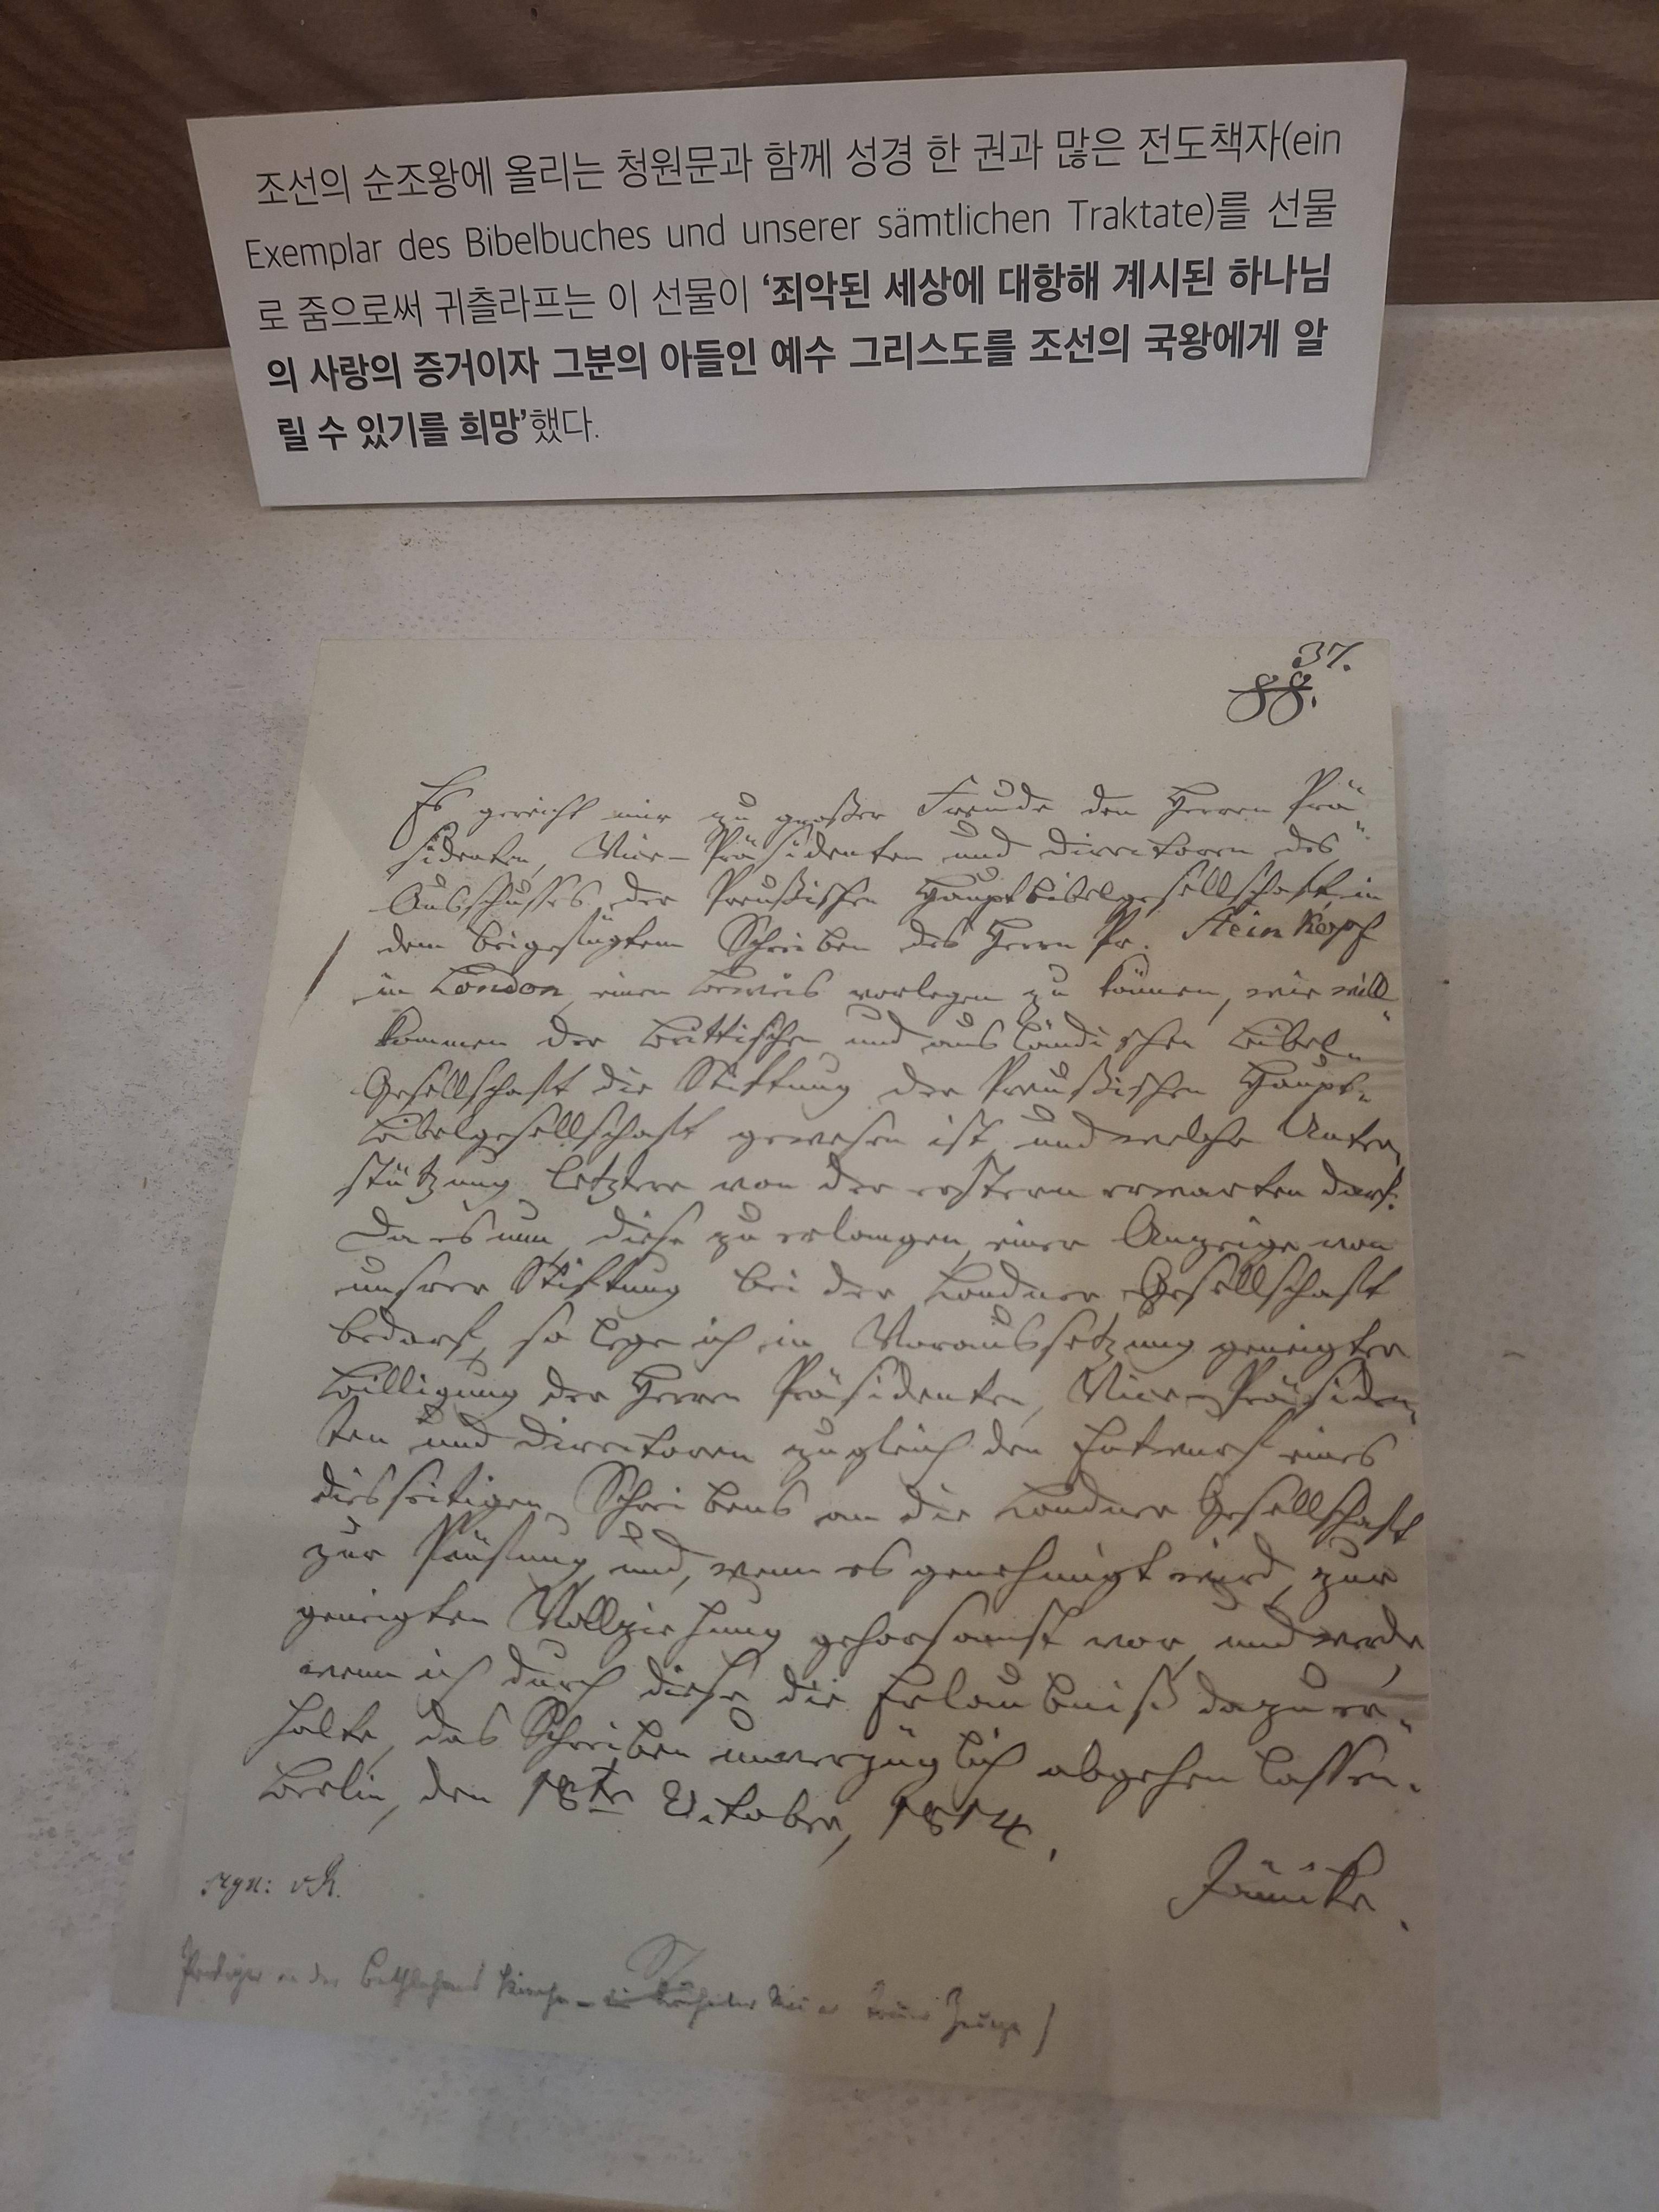 조선의 순조왕에 올리는 청원문과 함께 성경 한 권과 많은 전도책자(ein
Exemplar des Bibelbuches und unserer sämtlichen Traktate)를 선물
로 줌으로써 귀츨라프는 이 선물이 ‘죄악된 세상에 대항해 계시된 하나님
의 사랑의 증거이자 그분의 아들인 예수 그리스도를 조선의 국왕에게 알
릴 수 있기를 희망’했다.
37.
88.
Es gereicht mir zu großer Freude den Herren Prä-
sidenten, Vice-Präsidenten und Directoren des
Ausschusses der Preußischen Hauptbibelgesellschaft, in
dem beigefügten Schreiben des Herrn Dr. Steinkopf
in London, einen Beweis vorlegen zu können, wie will-
kommen der Brittischen und ausländischen Bibel-
Gesellschaft die Stiftung der Preußischen Haupt-
Bibelgesellschaft gewesen ist, und welche Unter-
stützung letztere von der erstern erwarten darf.
Da es nun, diese zu erlangen, einer Anzeige von
unsrer Stiftung bei der Londner Gesellschaft
bedarf, so lege ich in Voraussetzung geneigter
Billigung der Herren Präsidenten, Vice-Präsiden-
ten und Directoren zugleich den Entwurf eines
diesseitigen Schreibens an die Londner Gesellschaft
zur Prüfung, und, wenn es genehmigt wird, zur
geneigten Vollziehung gehorsamst vor, und werde
wenn ich durch diese die Erlaubniß dazu er-
halte, das Schreiben unverzüglich abgehen lassen.
Berlin, den 18ten October, 1814.
Jänicke.
Prediger an der Bethlehems Kirche